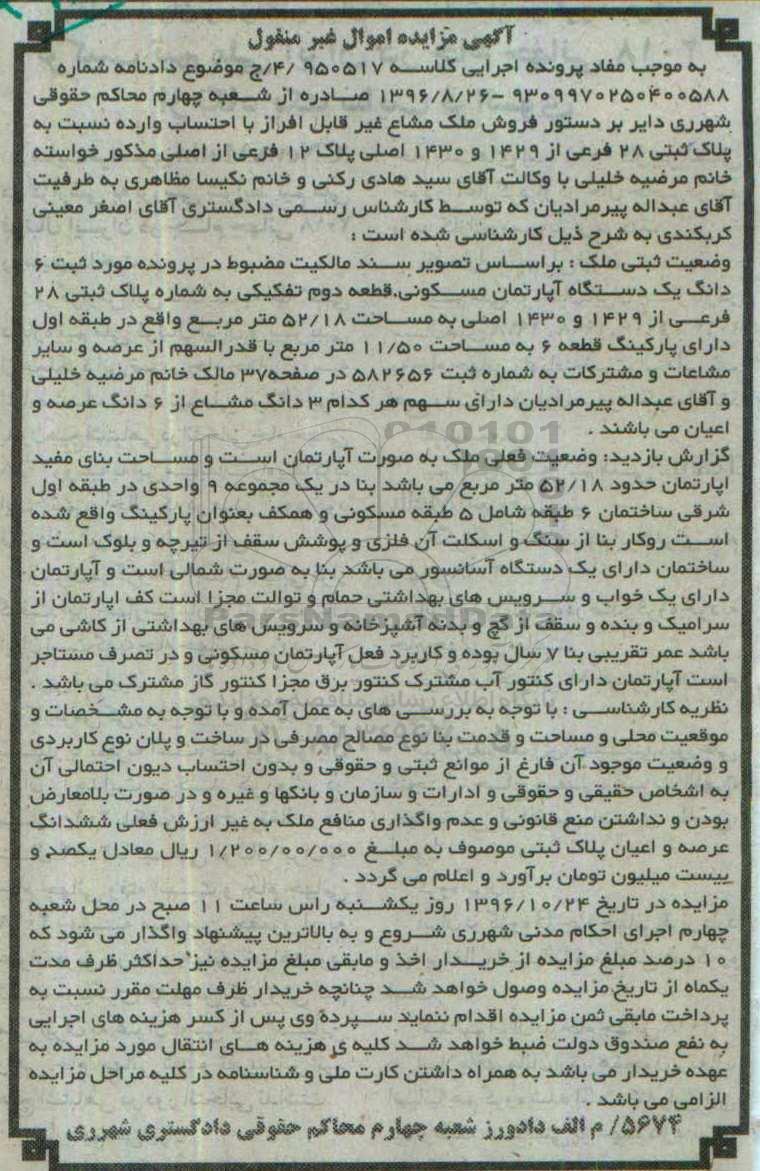 آگهی مزایده اموال غیر منقول
به موجب مفاد پرونده اجرایی کلاسه ۹۵۰۵۱۷ /۴/ج موضوع دادنامه شماره
۹۳۰۹۹۷۰۲۵۰۴۰۰۵۸۸ –۱۳۹۶/۸/۲۶ صادره از شعبه چهارم محاکم حقوقی
شهرری دایر بر دستور فروش ملک مشاع غیر قابل افراز با احتساب وارده نسبت به
پلاک ثبتی ۲۸ فرعی از ۱۴۲۹ و ۱۴۳۰ اصلی پلاک ۱۲ فرعی از اصلی مذکور خواسته
خانم مرضیه خلیلی با وکالت آقای سید هادی رکنی و خانم نکیسا مظاهری به طرفیت
آقای عبداله پیرمرادیان که توسط کارشناس رسمی دادگستری آقای اصغر معینی
کربکندی به شرح ذیل کارشناسی شده است :
وضعیت ثبتی ملک : براساس تصویر سند مالکیت مضبوط در پرونده مورد ثبت ۶
دانگ یک دستگاه آپارتمان مسکونی.قطعه دوم تفکیکی به شماره پلاک ثبتی ۲۸
فرعی از ۱۴۲۹ و ۱۴۳۰ اصلی به مساحت ۵۲/۱۸ متر مربع واقع در طبقه اول
دارای پارکینگ قطعه ۶ به مساحت ۱۱/۵۰ متر مربع با قدرالسهم از عرصه و سایر
مشاعات و مشترکات به شماره ثبت ۵۸۲۶۵۶ در صفحه۳۷ مالک خانم مرضیه خلیلی
و آقای عبداله پیرمرادیان دارای سهم هر کدام ۳ دانگ مشاع از ۶ دانگ عرصه و
اعیان می باشند .
گزارش بازدید: وضعیت فعلی ملک به صورت آپارتمان است و مساحت بنای مفید
اپارتمان حدود ۵۲/۱۸ متر مربع می باشد بنا در یک مجموعه ۹ واحدی در طبقه اول
شرقی ساختمان ۶ طبقه شامل ۵ طبقه مسکونی و همکف بعنوان پارکینگ واقع شده
است روکار بنا از سنگ و اسکلت آن فلزی و پوشش سقف از تیرچه و بلوک است و
ساختمان دارای یک دستگاه آسانسور می باشد بنا به صورت شمالی است و آپارتمان
دارای یک خواب و سرویس های بهداشتی حمام و توالت مجزا است کف اپارتمان از
سرامیک و بنده و سقف از گچ و بدنه آشپزخانه و سرویس های بهداشتی از کاشی می
باشد عمر تقریبی بنا ۷ سال بوده و کاربرد فعل آپارتمان مسکونی و در تصرف مستاجر
است آپارتمان دارای کنتور آب مشترک کنتور برق مجزا کنتور گاز مشترک می باشد .
نظریه کارشناسی : با توجه به بررسی های به عمل آمده و با توجه به مشخصات و
موقعیت محلی و مساحت و قدمت بنا نوع مصالح مصرفی در ساخت و پلان نوع کاربردی
و وضعیت موجود آن فارغ از موانع ثبتی و حقوقی و بدون احتساب دیون احتمالی آن
به اشخاص حقیقی و حقوقی و ادارات و سازمان و بانکها و غیره و در صورت بلامعارض
بودن و نداشتن منع قانونی و عدم واگذاری منافع ملک به غیر ارزش فعلی ششدانگ
عرصه و اعیان پلاک ثبتی موصوف به مبلغ ۱/۲۰۰/۰۰/۰۰۰ ریال معادل یکصد و
بیست میلیون تومان برآورد و اعلام می گردد .
مزایده در تاریخ ۱۳۹۶/۱۰/۲۴ روز یکشنبه راس ساعت ۱۱ صبح در محل شعبه
چهارم اجرای احکام مدنی شهرری شروع و به بالاترین پیشنهاد واگذار می شود که
۱۰ درصد مبلغ مزایده از خریدار اخذ و مابقی مبلغ مزایده نیز حداکثر ظرف مدت
یکماه از تاریخ مزایده وصول خواهد شد چنانچه خریدار ظرف مهلت مقرر نسبت به
پرداخت مابقی ثمن مزایده اقدام ننماید سپرده وی پس از کسر هزینه های اجرایی
به نفع صندوق دولت ضبط خواهد شد کلیه ی هزینه های انتقال مورد مزایده به
عهده خریدار می باشد به همراه داشتن کارت ملی و شناسنامه در کلیه مراحل مزایده
الزامی می باشد .
۵۶۷۴/ م الف دادورز شعبه چهارم محاکم حقوقی دادگستری شهرری